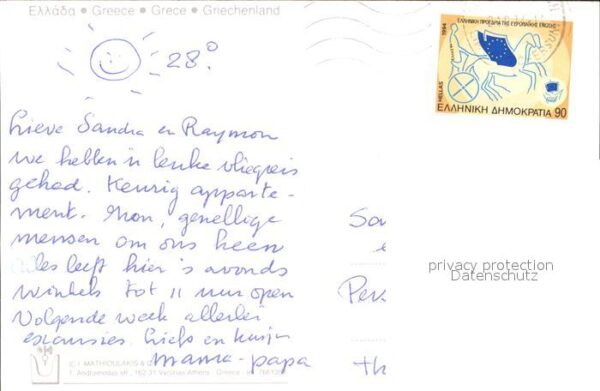 Ελλάδα • Greece • Grece • Griechenland
28°
ΕΛΛΗΝΙΚΗ ΠΡΟΕΔΡΙΑ ΤΗΣ ΕΥΡΩΠΑΪΚΗΣ ΕΝΩΣΗΣ
1994
HELLAS
ΕΛΛΗΝΙΚΗ ΔΗΜΟΚΡΑΤΙΑ 90
Lieve Sandra en Raymon
we hebben 'n leuke vliegreis
gehad. Keurig apparte-
ment. Mon, gezellige
mensen om ons heen
alles leeft hier 's avonds
winkels tot 11 uur open
Volgende week allerlei
excursies. Liefs en kusjes
mama - papa
privacy protection
Datenschutz
MATHIOULAKIS &
T. Andromedas str., 162 31 Vyronas Athens - Greece